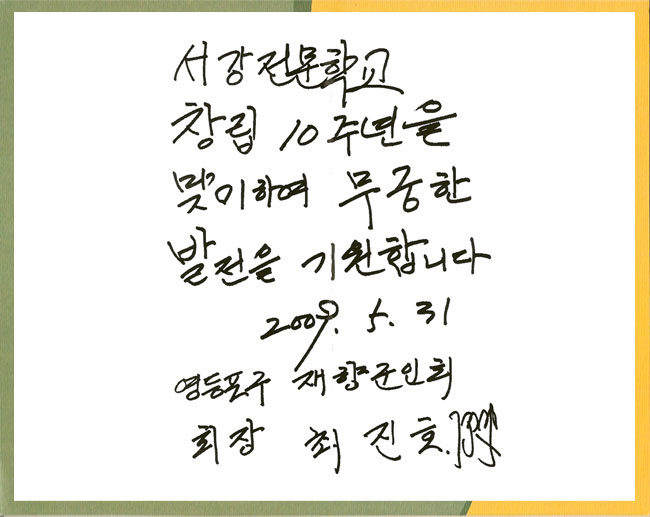 서강전문학교
창립 10주년을
맞이하여 무궁한
발전을 기원합니다
2009. 5. 31
영등포구 재향군인회
회장 최진호